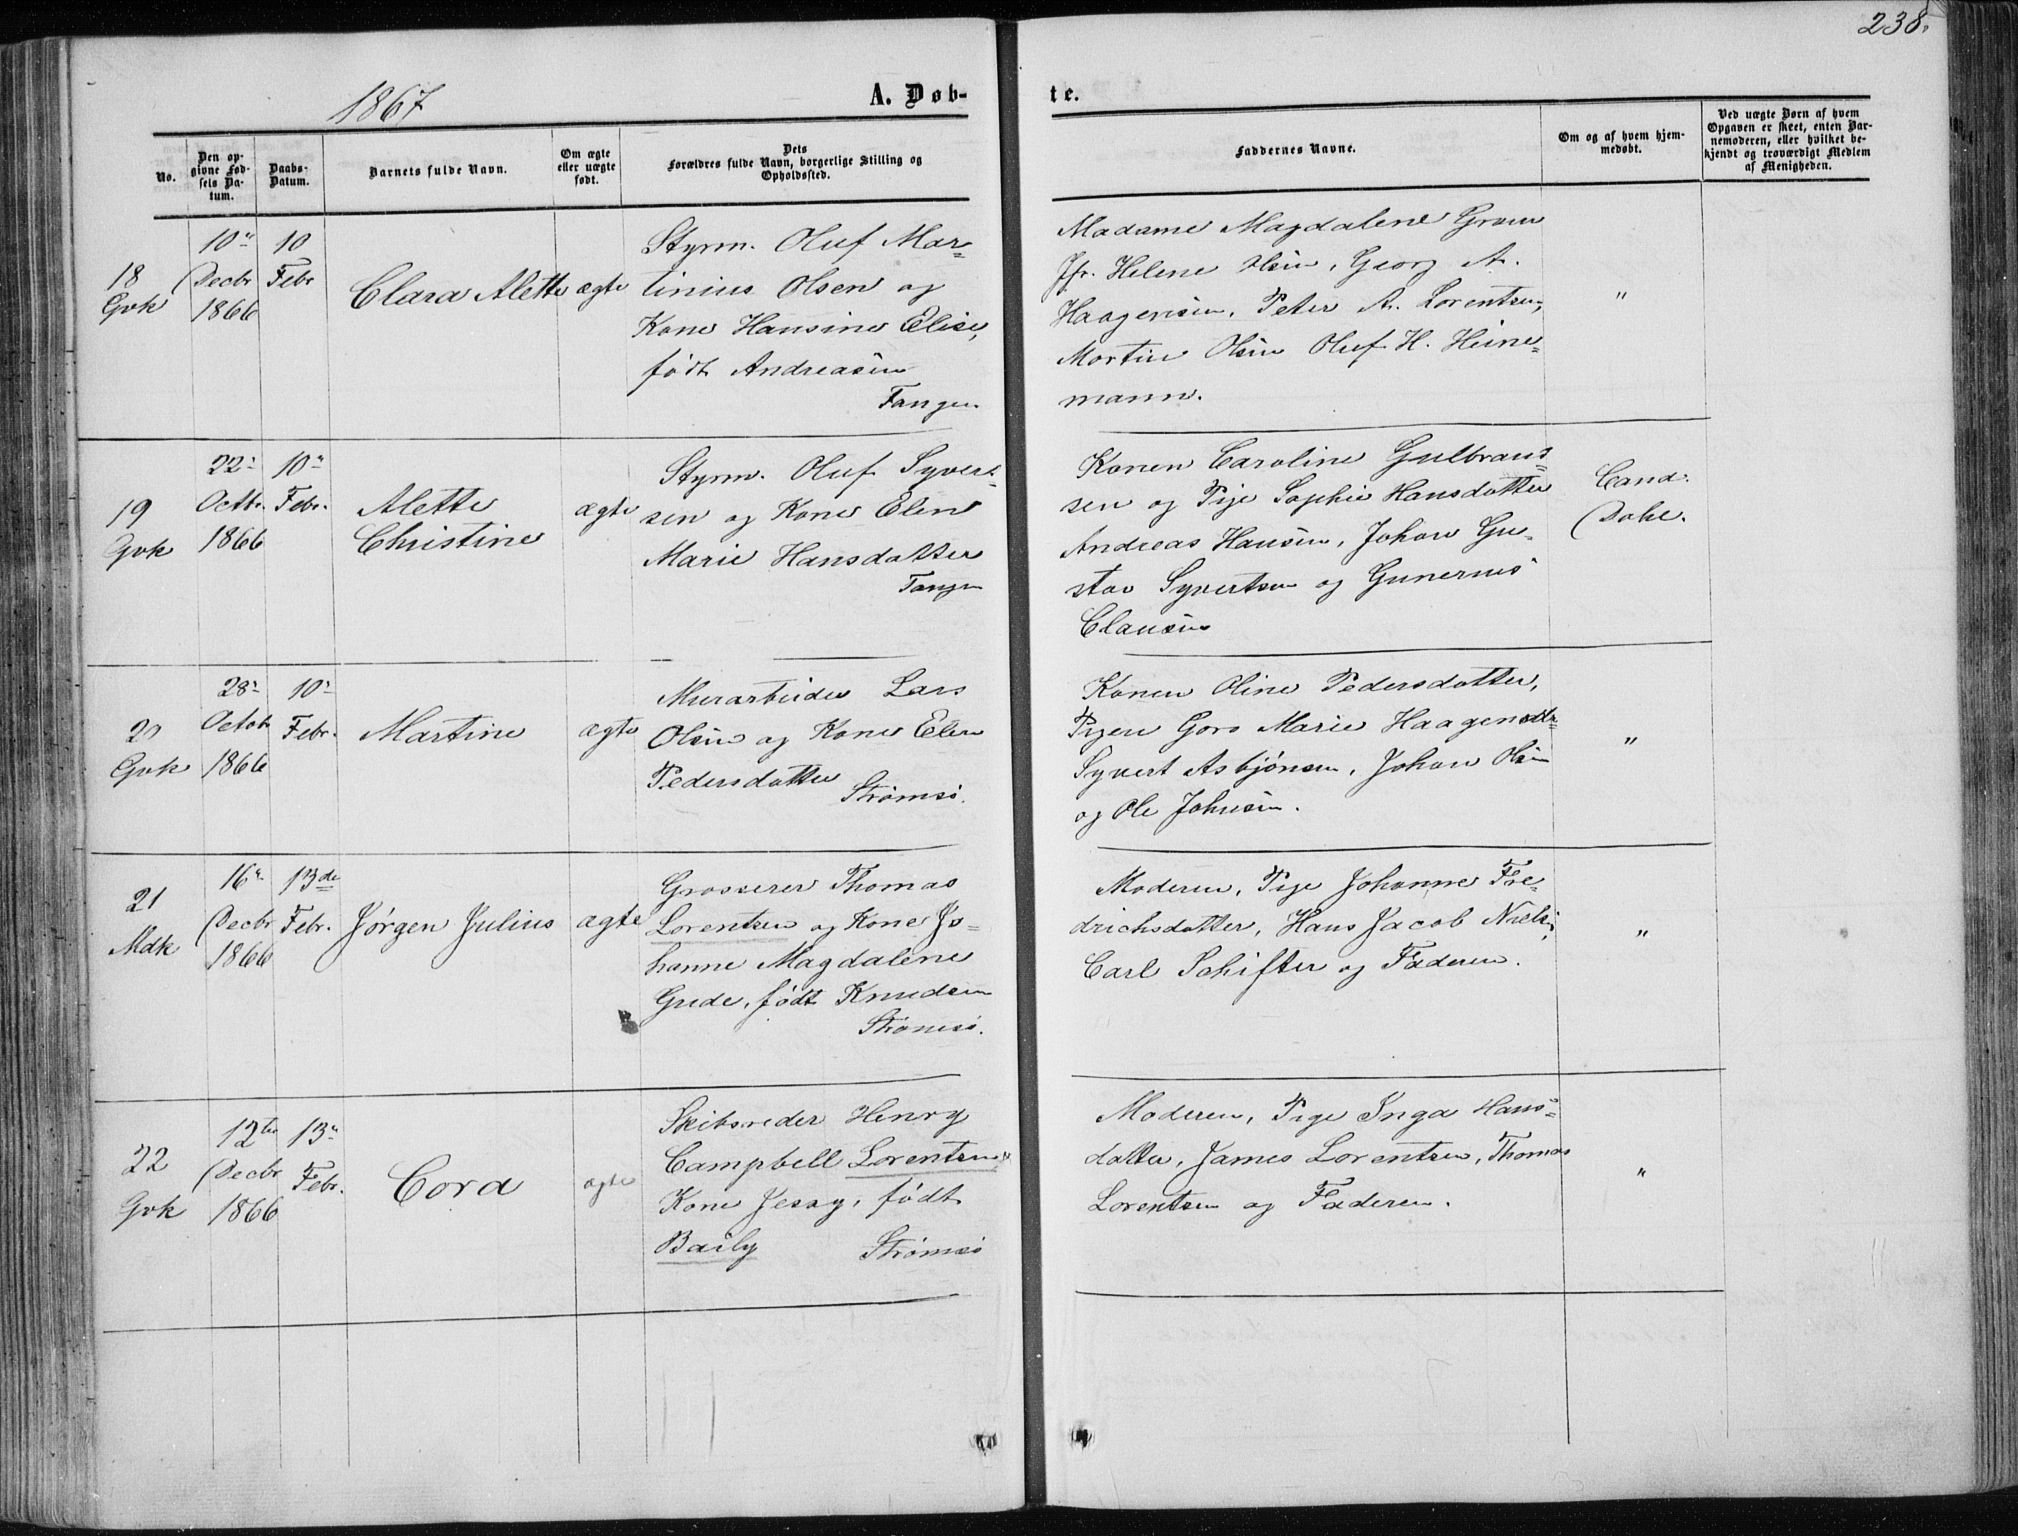 238.
1867
A. Døb-
te.
No.
Den op-
givne Fød-
sels Da-
tum.
Daabs-
Datum.
Barnets fulde Navn.
Om ægte
eller uægte
født.
Dets
Forældres fulde Navn, borgerlige Stilling og
Opholdssted.
Faddernes Navne.
Om og af hvem hjem-
medøbt.
Ved uægte Børn af hvem
Opgaven er skeet, enten Bar-
nemoderen, eller hvilket be-
kjendt og troværdigt Medlem
af Menigheden.
18
Gvk
10
Decbr
1866
10
Febr
Clara Alette
ægte
Styrm. Oluf Mar-
tinius Olsen og
Kone Hansine Elise,
født Andreasen
Tangen.
Madame Magdalene Gram
Jfr. Helene Olsen, Georg A.
Haagensen, Peter A. Lorentzen,
Martin Olsen Oluf H. Heine-
mann.
"
19
Gvk
22
Octbr.
1866
10
Febr.
Alette
Christine
ægte
Styrm. Oluf Syvert-
sen og Kone Elen
Marie Hansdatter
Tangen
Konen Caroline Gulbrand-
sen og Pige Sophie Hansdatter
Andreas Hansen, Johan Gu-
stav Syvertsen og Gunerius
Clausen
Cand.
Dahl.
20
Gvk
28
Octob
1866
10
Febr.
Martine
ægte
Murarbeider Lars
Olsen og Kone Elen
Pedersdatter
Strømsø.
Konen Oline Pedersdatter,
Pigen Goro Marie Haagensdtr
Syvert Asbjønsen, Johan Olsen
og Ole Johnsen.
"
21
Mdk
16
Decbr
1866
13de
Febr.
Jørgen Julius
ægte
Grosserer Thomas
Lorentzen og Kone Jo-
hanne Magdalene
Gude, født Knudsen
Strømsø.
Moderen, Pige Johanne Fre-
drichsdatter, Hans Jacob Niels,
Carl Schifter og Faderen.
"
22
Gvk
12te
Decbr
1866
13
Febr.
Cora
ægte
Skibsreder Henry
Campbell Lorentzen
Kone Jessy, født
Baily Strømsø
Moderen, Pige Inga Hans-
datter, James Lorentzen, Thomas
Lorentsen og Faderen.
"